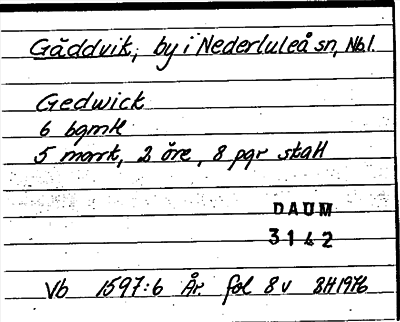 Gäddvik, by i Nederluleå sn, Nbl.
Gedwick
6 bgmt
5 mark, 2 öre, 8 pgr skatt
DAUM
3142
Vb 1597:6 År. fol 8v BH1976